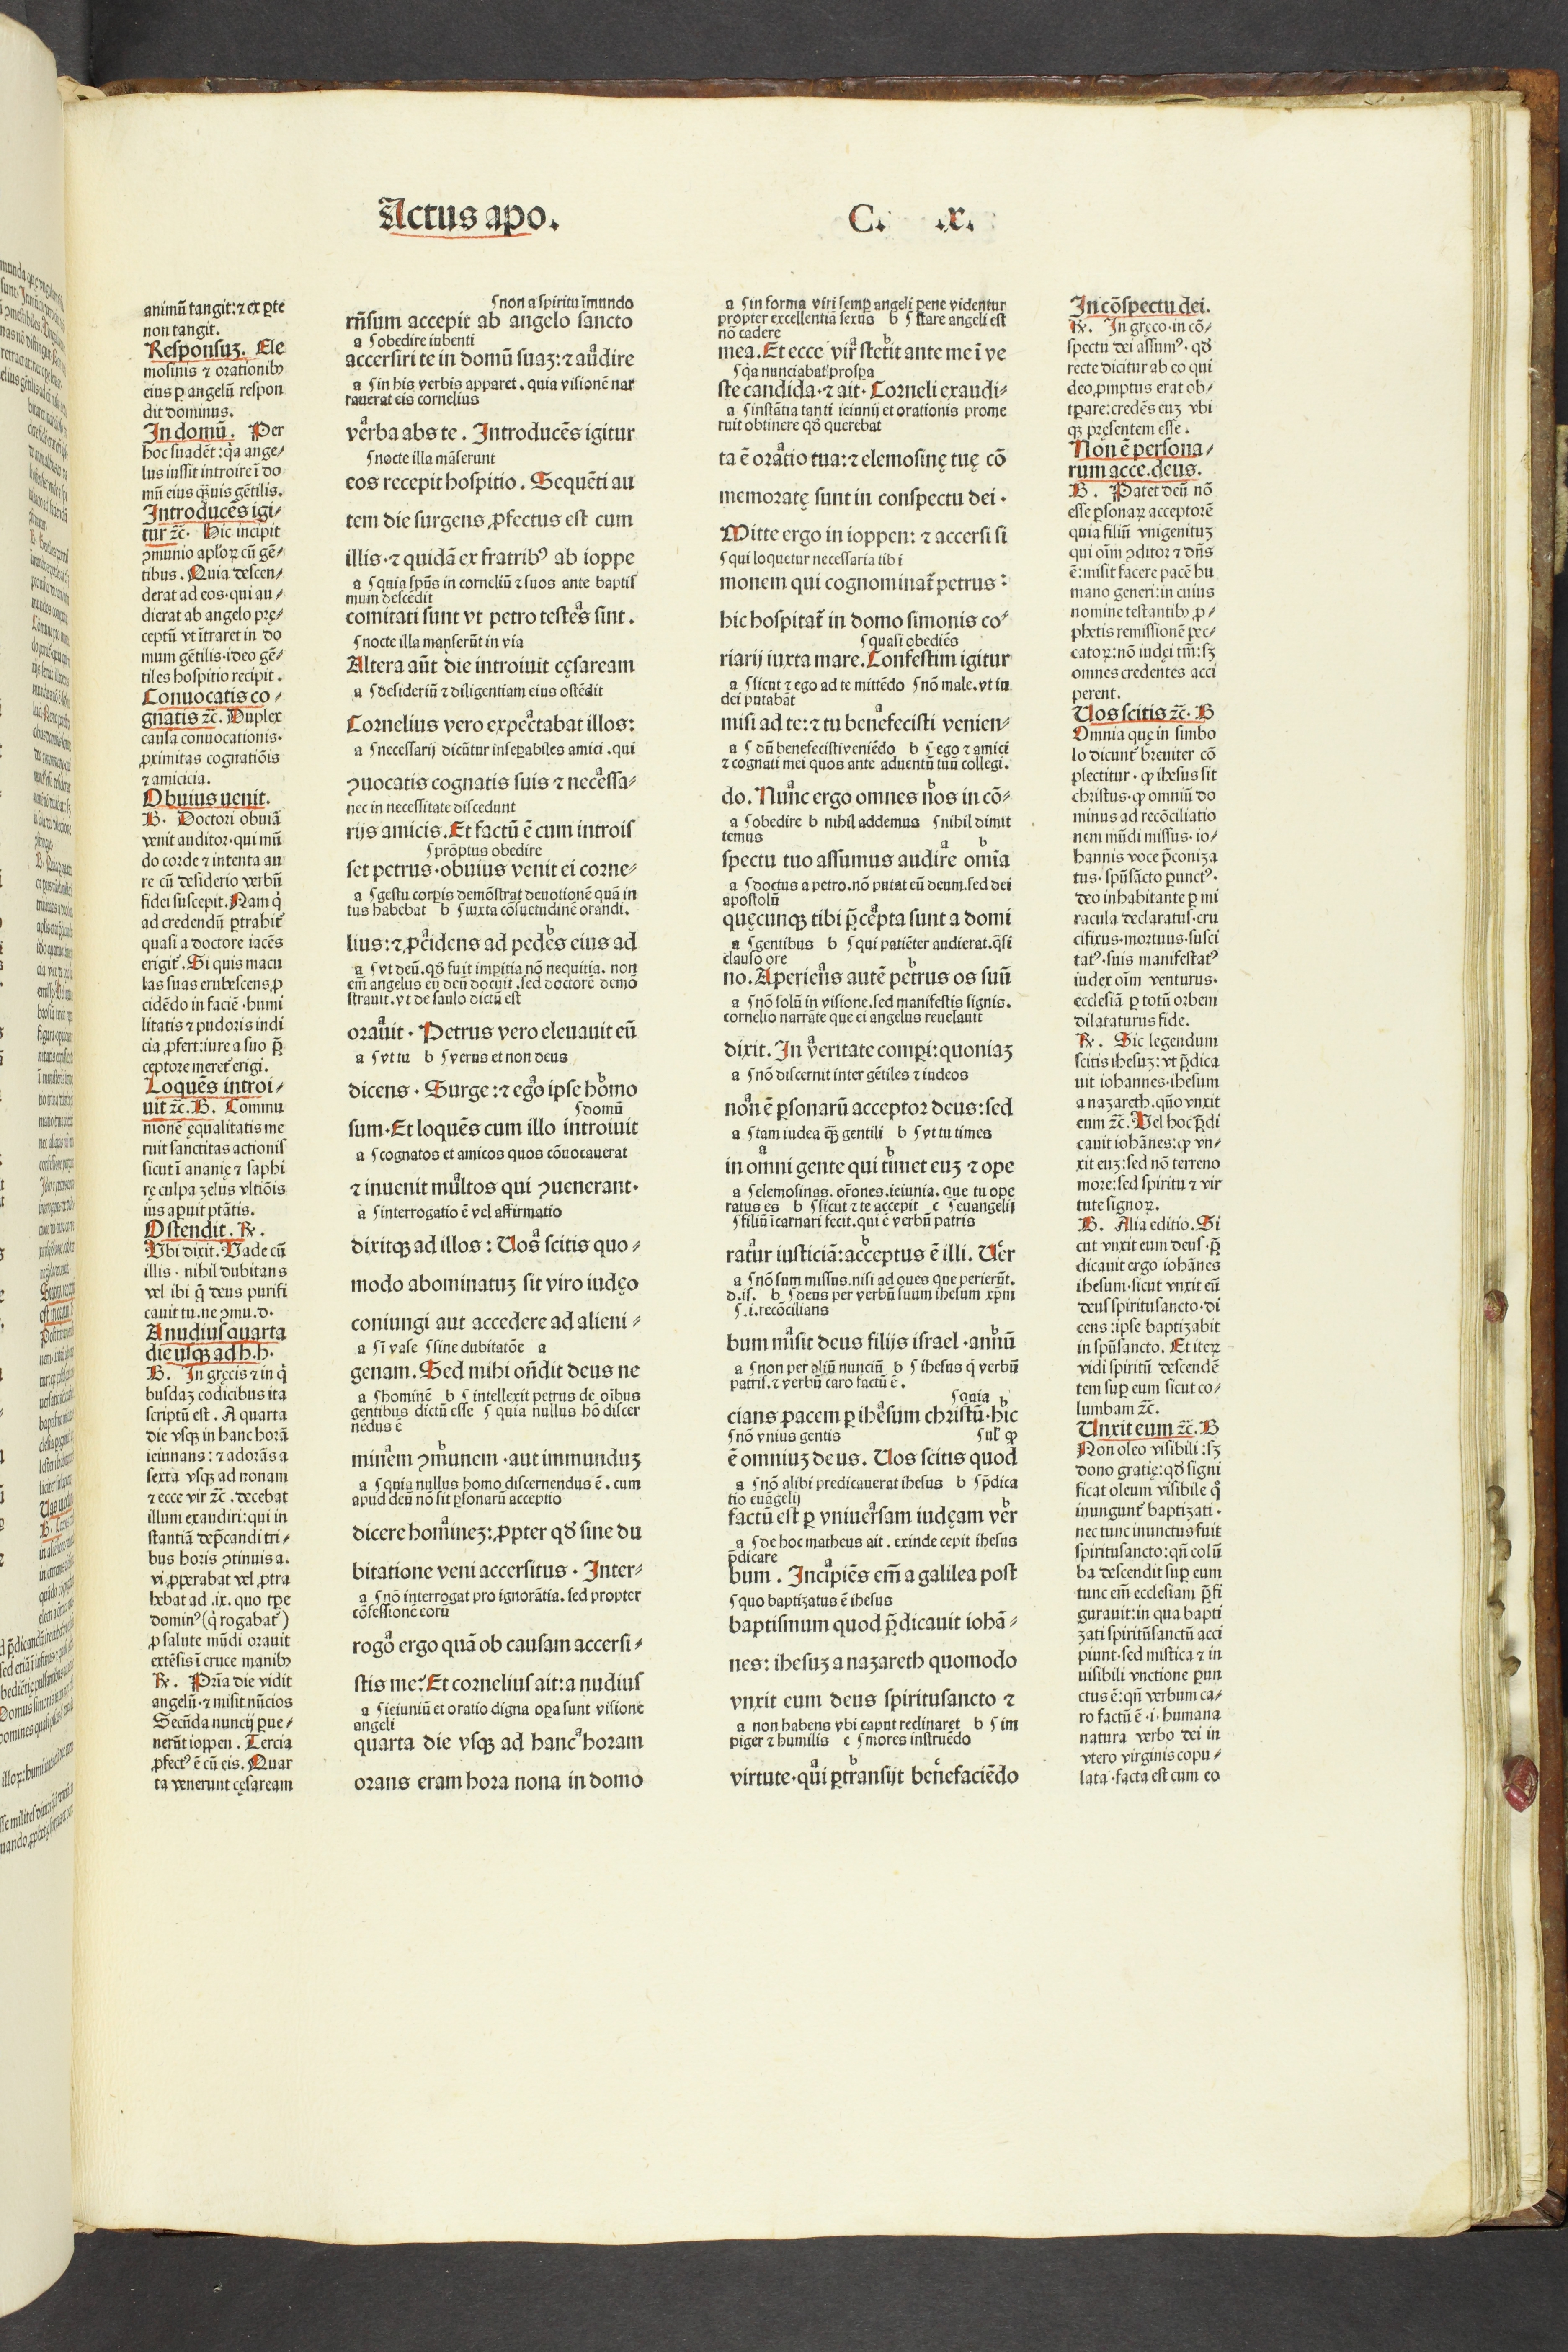 Actus apo.
C. .x.
animū tangit: ⁊ ex ꝑte
non tangit.
Responsuꝫ. Ele
mosinis ⁊ orationibꝰ
eius ꝑ angelū respon
dit dominus.
In domū. Per
hoc suadēt: q̄a ange⸗
lus iussit introire ī do
mū eius q̄uis gētilis.
Introducēs igi⸗
tur ⁊c̄. Hic incipit
ꝯmunio aploꝝ cū gē⸗
tibus. Quia descen⸗
derat ad eos. qui au⸗
dierat ab angelo prę⸗
ceptū vt ītraret in do
mum gētilis. ideo gē⸗
tiles hospitio recipit.
Conuocatis co⸗
gnatis ⁊c̄. Duplex
causa conuocationis.
ꝓximitas cognatiōis
⁊ amicicia.
Obuius uenit.
B. Doctori obuiā
venit auditor. qui mū
do corde ⁊ intenta au
re cū desiderio verbū
fidei suscepit. Nam q̄
ad credendū ꝑtrahit᷑
quasi a doctore iacēs
erigit᷑. Si quis macu
las suas erubescens ꝓ
cidēdo in faciē. humi
litatis ⁊ pudoris indi
cia ꝓfert: iure a suo p̄
ceptore meret᷑ erigi.
Loquēs introi⸗
uit ⁊c̄. B. Commu
nionē ęqualitatis me
ruit sanctitas actionis
sicut ī ananię ⁊ saphi
rę culpa zelus vltiōis
ius aꝑuit ptātis.
Ostendit. Rꝰ.
Ubi dixit. Vade cū
illis. nihil dubitans
vel ibi q̄ deus purifi
cauit tu. ne ꝯmu. d.
A nudius quarta
die usqꝫ ad h. h.
B. In gręcis ⁊ in q̄
busdaꝫ codicibus ita
scriptū est. A quarta
die vsqꝫ in hanc horā
ieiunans: ⁊ adorās a
sexta vsqꝫ ad nonam
⁊ ecce vir ⁊c̄. decebat
illum exaudiri: qui in
stantiā dep̄candi tri⸗
bus horis ꝯtinuis a.
vi ꝓperabat vel ꝓtra
hebat ad .ix. quo tꝑe
dominꝰ (q̄ rogabat᷑)
ꝓ salute mūdi orauit
extēsis ī cruce manibꝰ
Rꝰ. Pria die vidit
angelū. ⁊ misit nūcios
Secūda nuncij ꝑue⸗
nerūt ioppen. Tercia
ꝓfectꝰ ē cū eis. Quar
ta venerunt cęsaream
ʃ non a spiritu īmundo
rn̄sum accepit ab angelo sancto
a ʃ obedire iubenti
accersiri te in domū suaꝫ: ⁊ audire
a ʃ in his verbis apparet. quia visionē nar
rauerat eis cornelius
verba abs te. Introducēs igitur
ʃ nocte illa māserunt
eos recepit hospitio. Sequēti au
tem die surgens ꝓfectus est cum
illis. ⁊ quidā ex fratribꝰ ab ioppe
a ʃ quia spūs in corneliū ⁊ suos ante baptis
mum descēdit
comitati sunt vt petro testes sint.
ʃ nocte illa manserūt in via
Altera aūt die introiuit cęsaream
a ʃ desideriū ⁊ diligentiam eius ostēdit
Cornelius vero expectabat illos:
a ʃ necessarij dicūtur inseꝑabiles amici. qui
ꝯuocatis cognatis suis ⁊ necessa⸗
nec in necessitate discedunt
rijs amicis. Et factū ē cum introis
ʃ prōptus obedire
set petrus. obuius venit ei corne⸗
a ʃ gestu corꝑis demōstrat deuotionē quā in
tus habebat b ʃ iuxta cōsuetudinē orandi.
lius: ⁊ ꝓcidens ad pedes eius ad
a ʃ vt deū. qđ fuit imꝑitia nō nequitia. non
em̄ angelus eū deū docuit. sed doctorē demō
strauit. vt de saulo dictū est
orauit. Petrus vero eleuauit eū
a ʃ vt tu b ʃ verus et non deus
dicens. Surge: ⁊ ego ipse homo
ʃ domū
sum. Et loquēs cum illo introiuit
a ʃ cognatos et amicos quos cōuocauerat
⁊ inuenit multos qui ꝯuenerant.
a ʃ interrogatio ē vel affirmatio
dixitqꝫ ad illos: Uos scitis quo⸗
modo abominatuꝫ sit viro iudęo
coniungi aut accedere ad alieni⸗
a ʃ ī vase ʃ sine dubitatōe a
genam. Sed mihi on̄dit deus ne
a ʃ hominē b ʃ intellexit petrus de oībus
gentibus dictū esse ʃ quia nullus hō discer
nēdus ē
minem ꝯmunem. aut immunduꝫ
a ʃ quia nullus homo discernendus ē. cum
apud deū nō sit ꝑsonarū acceptio
dicere homineꝫ: ꝓpter qđ sine du
bitatione veni accersitus. Inter⸗
a ʃ nō interrogat pro ignorātia. sed propter
cōfessionē eorū
rogo ergo quā ob causam accersi⸗
stis me? Et cornelius ait: a nudius
a ʃ ieiuniū et oratio digna oꝑa sunt visione
angeli
quarta die vsqꝫ ad hanc horam
orans eram hora nona in domo
a ʃ in forma viri semꝑ angeli pene videntur
propter excellentiā sexus b ʃ stare angeli est
nō cadere
mea. Et ecce vir stetit ante me ī ve
ʃ q̄a nunciabat prosꝑa
ste candida. ⁊ ait. Corneli exaudi⸗
a ʃ instātia tanti ieiunij et orationis prome
ruit obtinere qđ querebat
ta ē oratio tua: ⁊ elemosinę tuę cō
memoratę sunt in conspectu dei.
Mitte ergo in ioppen: ⁊ accersi si
ʃ qui loquetur necessaria tibi
monem qui cognominat᷑ petrus:
hic hospitat᷑ in domo simonis co⸗
ʃ quasi obediēs
riarij iuxta mare. Confestim igitur
a ʃ sicut ⁊ ego ad te mittēdo ʃ nō male. vt iu
dei putabāt
misi ad te: ⁊ tu benefecisti venien⸗
a ʃ dū benefecisti veniēdo b ʃ ego ⁊ amici
⁊ cognati mei quos ante aduentū tuū collegi.
do. Nunc ergo omnes nos in cō⸗
a ʃ obedire b nihil addemus ʃ nihil dimit
temus
spectu tuo assumus audire omīa
a ʃ doctus a petro. nō putat eū deum. sed dei
apostolū
quęcunqꝫ tibi p̄cepta sunt a domi
a ʃ gentibus b ʃ qui patiēter audierat. q̄si
clauso ore
no. Aperiens autē petrus os suū
a ʃ nō solū in visione. sed manifestis signis.
cornelio narrāte que ei angelus reuelauit
dixit. In veritate comꝑi: quoniaꝫ
a ʃ nō discernit inter gētiles ⁊ iudeos
non ē ꝑsonarū acceptor deus: sed
a ʃ tam iudea q̄ꝫ gentili b ʃ vt tu times
in omni gente qui timet euꝫ ⁊ ope
a ʃ elemosinas. orōnes. ieiunia. que tu ope
ratus es b ʃ sicut ⁊ te accepit c ʃ euangelij
ʃ filiū īcarnari fecit. qui ē verbū patris
ratur iusticiā: acceptus ē illi. Uer
a ʃ nō sum missus. nisi ad oues que perierūt.
d. is. b ʃ deus per verbū suum ihesum xp̄m
ʃ .i. recōcilians
bum misit deus filijs israel. annū
a ʃ non per aliū nunciū b ʃ ihesus q̄ verbū
patris. ⁊ verbū caro factū ē.
ʃ quia
cians pacem ꝑ ihesum christū. hic
ʃ nō vnius gentis ʃul̄ ꝙ
ē omniuꝫ deus. Uos scitis quod
a ʃ nō alibi predicauerat ihesus b ʃ p̄dica
tio euāgelij
factū est ꝑ vniuersam iudęam ver
a ʃ de hoc matheus ait. exinde cepit ihesus
p̄dicare
bum. Incipiēs em̄ a galilea post
ʃ quo baptizatus ē ihesus
baptismum quod p̄dicauit iohā⸗
nes: ihesuꝫ a nazareth quomodo
vnxit eum deus spiritusancto ⁊
a non habens vbi caput reclinaret b ʃ im
piger ⁊ humilis c ʃ mores instruēdo
virtute. qui ꝑtransijt benefaciēdo
In cōspectu dei.
Rꝰ. In gręco. in cō⸗
spectu dei assumꝰ. qđ
recte dicitur ab eo qui
deo ꝓmptus erat ob⸗
tꝑare: credēs euꝫ vbi
qꝫ pręsentem esse.
Non ē persona⸗
rum acce. deus.
B. Patet deū nō
esse ꝑsonaꝝ acceptorē
quia filiū vnigenituꝫ
qui oīm ꝯditor ⁊ dn̄s
ē: misit facere pacē hu
mano generi: in cuius
nomine testantibꝰ ꝓ⸗
phetis remissionē pec⸗
catoꝝ: nō iudęi tm̄: sꝫ
omnes credentes acci
perent.
Uos scitis ⁊c̄. B
Omnia quę in simbo
lo dicunt᷑ breuiter cō
plectitur. ꝙ ihesus sit
christus. ꝙ omniū do
minus ad recōciliatio
nem mūdi missus. io⸗
hannis voce p̄coniza
tus. spūsancto ꝑunctꝰ.
deo inhabitante ꝑ mi
racula declaratus. cru
cifixus. mortuus. susci
tatꝰ. suis manifestatꝰ
iudex oīm venturus.
ecclesiā ꝑ totū orbem
dilataturus fide.
Rꝰ. Sic legendum
scitis ihesuꝫ: vt p̄dica
uit iohannes. ihesum
a nazareth. qūo vnxit
eum ⁊c̄. Vel hoc p̄di
cauit iohānes: ꝙ vn⸗
xit euꝫ: sed nō terreno
more: sed spiritu ⁊ vir
tute signoꝝ.
B. Alia editio. Si
cut vnxit eum deus. p̄
dicauit ergo iohānes
ihesum. sicut vnxit eū
deus spiritusancto. di
cens: ipse baptizabit
in spūsancto. Et iteꝝ
vidi spiritū descendē
tem suꝑ eum sicut co⸗
lumbam ⁊c̄.
Unxit eum ⁊c̄. B
Non oleo visibili: sꝫ
dono gratię: qđ signi
ficat oleum visibile q̄
inungunt᷑ baptizati.
nec tunc inunctus fuit
spiritusancto: qn̄ colū
ba descendit suꝑ eum
tunc em̄ ecclesiam p̄fi
gurauit: in qua bapti
zati spiritūsanctū acci
piunt. sed mistica ⁊ in
uisibili vnctione ꝑun
ctus ē: qn̄ verbum ca⸗
ro factū ē .i. humana
natura verbo dei in
vtero virginis copu⸗
lata. facta est cum eo